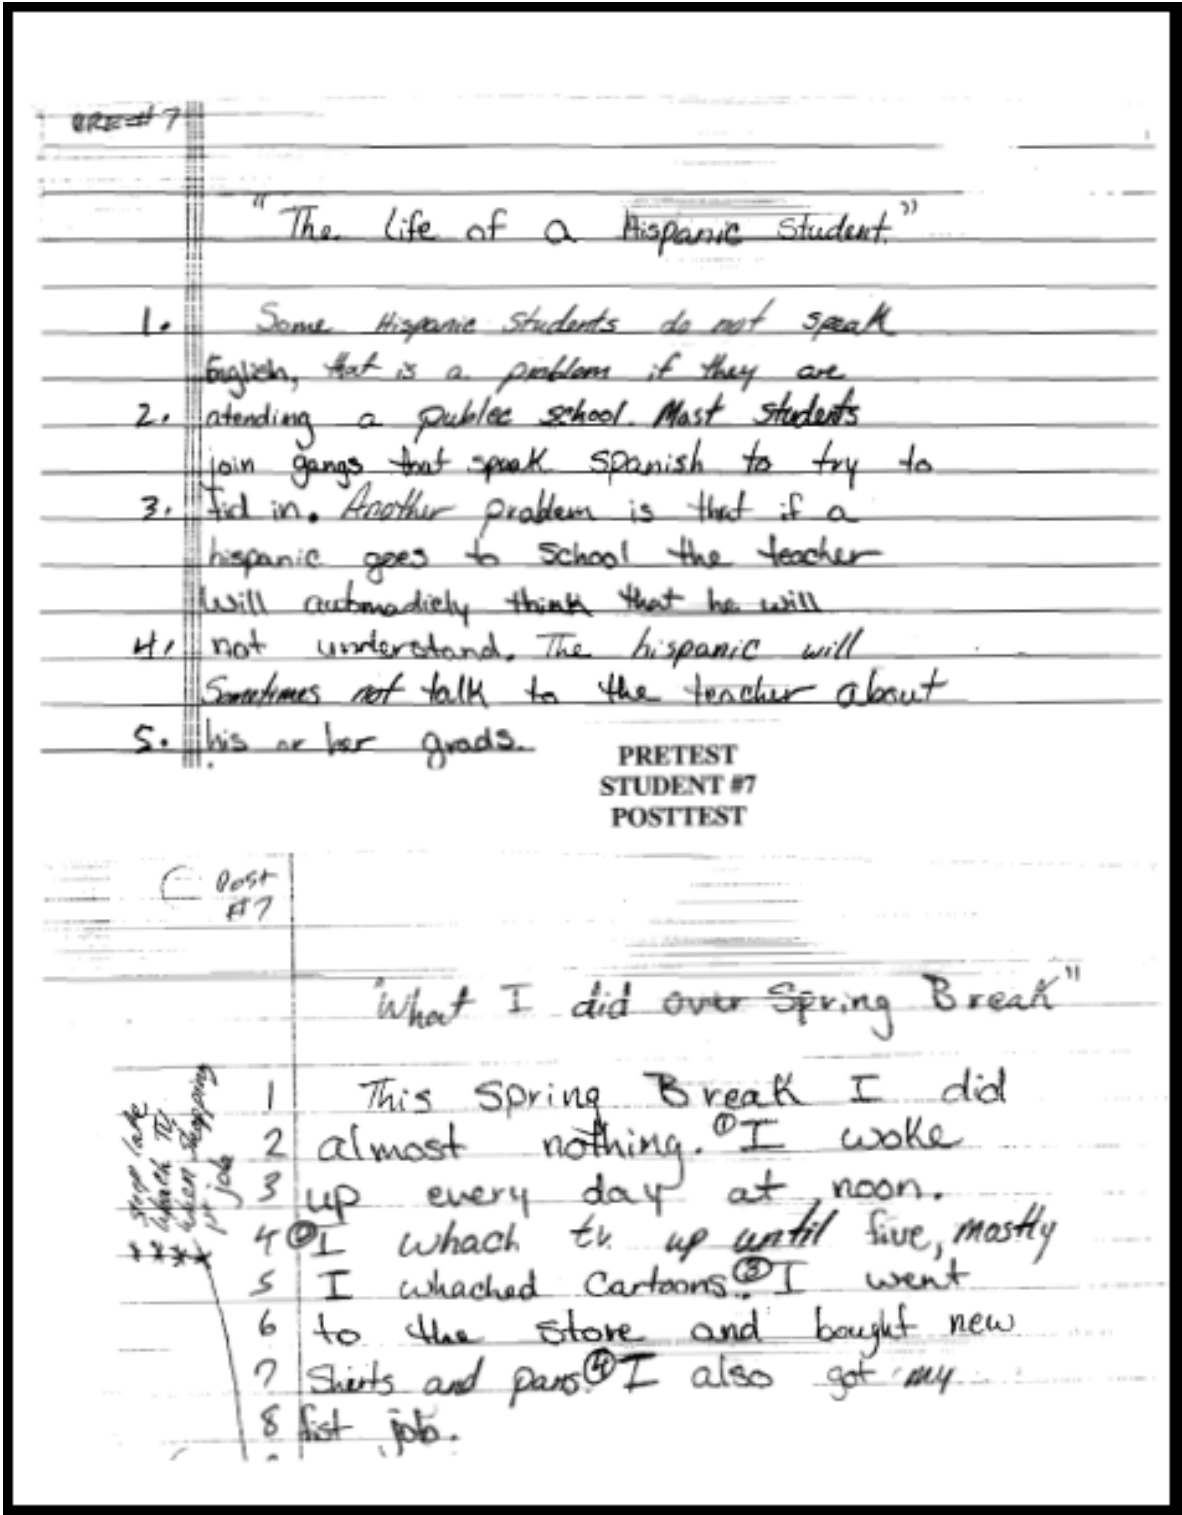 PRE#7
"The life of a Hispanic Student."
1. Some Hispanic Students do not speak
English, that is a problem if they are
2. atending a publec school. Mast students
join gangs that speak spanish to try to
3. fid in. Another problem is that if a
hispanic goes to school the teacher
will autmadicly think that he will
4. not understand. The hispanic will
Sometimes not talk to the teacher about
5. his or her grads.
PRETEST
STUDENT #7
POSTTEST
Post
#7
"What I did over Spring Break"
1 This Spring Break I did
2 almost nothing. ① I woke
3 up every day at noon.
4 ② I whach tv. up until five, mostly
5 I whached Cartoons. ③ I went
6 to the store and bought new
7 Shirts and pans. ④ I also got my
8 fist job.
* slep late
* whach TV
* when shopping
* job